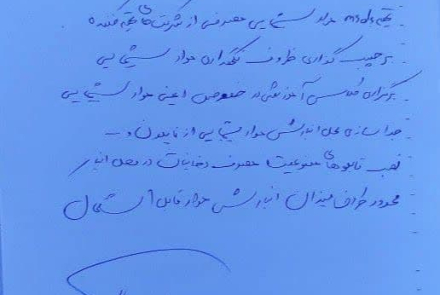 تهیه msds مواد شیمیایی مصرفی از شرکت‌های تهیه کننده
برچسب گذاری ظروف نگهداری مواد شیمیایی
برگزاری کلاس آموزشی در خصوص ایمنی مواد شیمیایی
جدا سازی محل انبارش مواد شیمیایی از نایلون و ...
نصب تابلوهای ممنوعیت مصرف دخانیات در محل انبار
محدود کردن میزان انبارش مواد قابل اشتعال